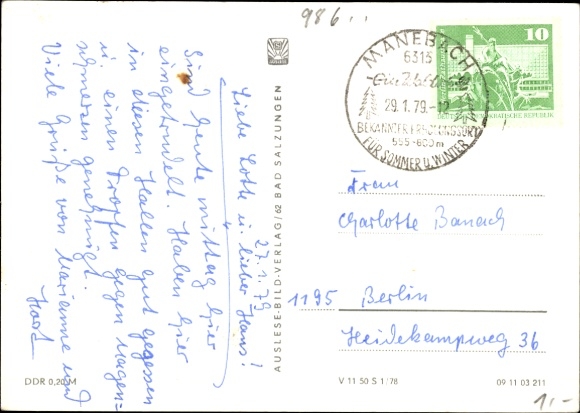 986..
27.1.79
Liebe Lotte u. lieber Hans!
Sind heute mittag hier
eingetrudelt. Haben hier
in diesen Hallen gut gegessen
u. einen Tropfen gegen Magen=
schmerzen genehmigt.
Viele Grüße von Marianne und
Horst
DDR 0,20 M
AUSLESE-BILD-VERLAG/62 BAD SALZUNGEN
MANEBACH
6315
29.1.79.-12
BEKANNTER ERHOLUNGSORT
555-800 m
FÜR SOMMER U. WINTER
10
DEUTSCHE DEMOKRATISCHE REPUBLIK
Frau
Charlotte Banach
1195 Berlin
Heidekampweg 36
V 11 50 S 1/78
09 11 03 211
1,-